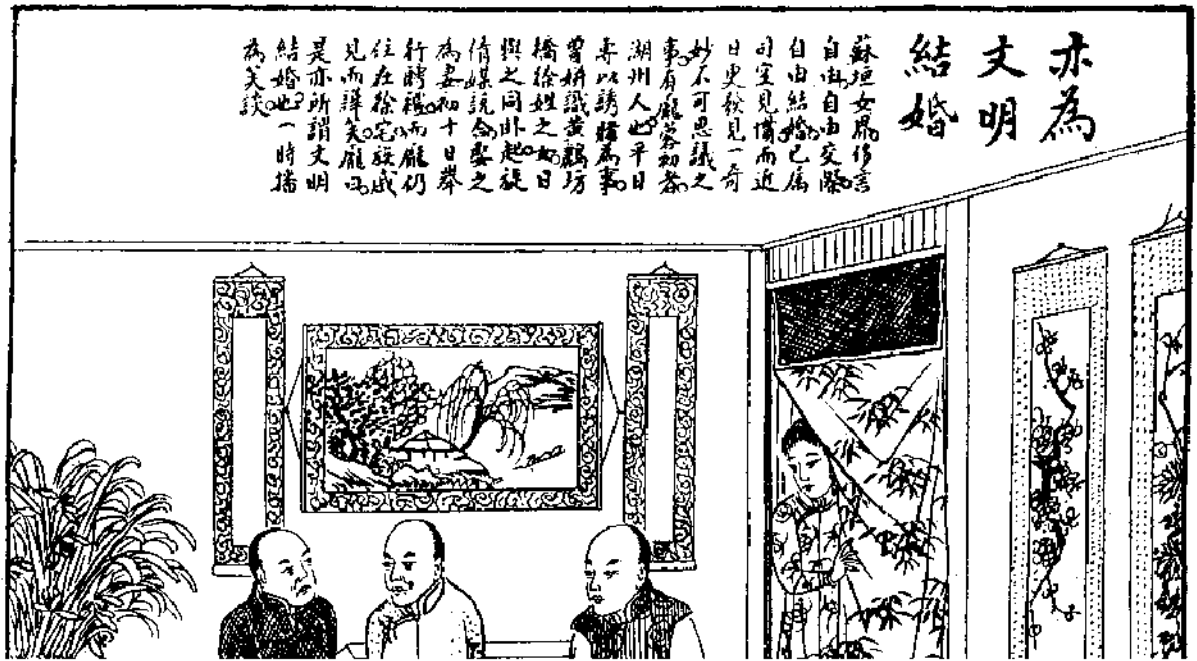 亦為
文明
結婚
蘇垣女界侈言
自由。自由交際。
自由結婚。已属
司空見慣而近
日更發見一奇
妙不可思議之
事。有龐蓉初者。
湖州人也。平日
專以誘為事。
曾姘識黄鸝坊
橋徐姓之女。日
與之同卧起。旋
倩媒説合。娶之
為妻。初十日舉
行聘禮。而龐仍
住在徐宅。族戚
見而譁笑。龐曰。
是亦所謂文明
結婚也。一時播
為笑談。